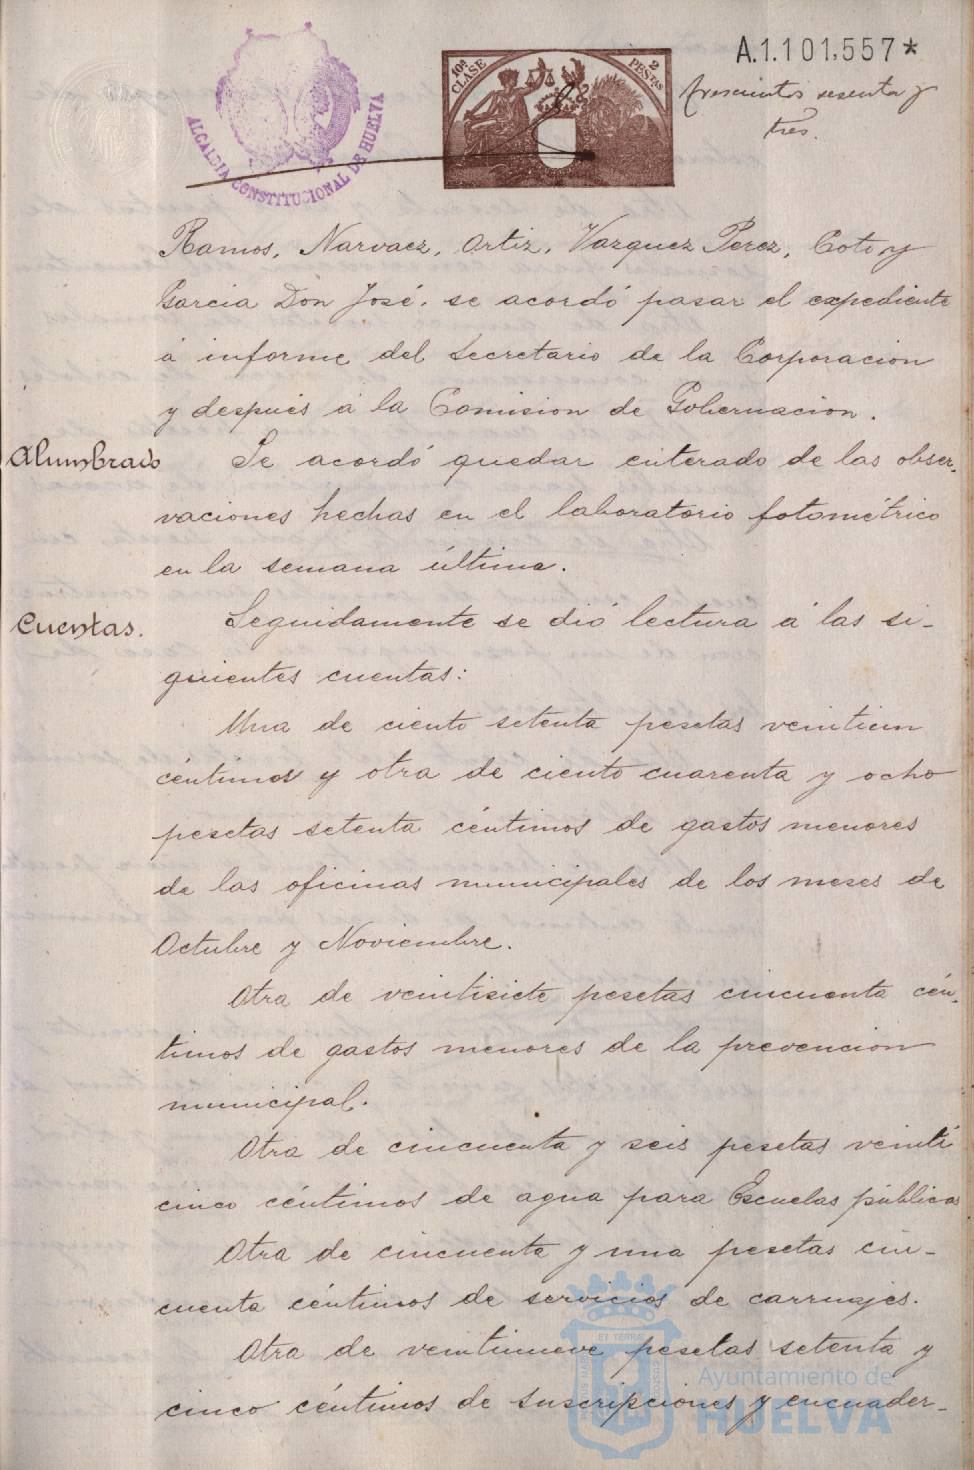 A.1.101,557*
10ª CLASE 2 PESTAS
trescientos sesenta y
tres.
ALCALDIA CONSTITUCIONAL DE HUELVA
Ramos, Narvaez, Ortiz, Vazquez Perez, Coto y
Garcia Don José, se acordó pasar el expediente
á informe del Secretario de la Corporacion
y después á la Comision de Gobernacion.
Alumbrado Se acordó quedar enterado de las obser-
vaciones hechas en el laboratorio fotométrico
en la semana última.
Cuentas. Seguidamente se dió lectura á las si-
guientes cuentas:
Una de ciento setenta pesetas veintiun
céntimos y otra de ciento cuarenta y ocho
pesetas setenta céntimos de gastos menores
de las oficinas municipales de los meses de
Octubre y Noviembre.
Otra de veintisiete pesetas cincuenta cén-
timos de gastos menores de la prevencion
municipal.
Otra de cincuenta y seis pesetas veinti
cinco céntimos de agua para Escuelas públicas
Otra de cincuenta y una pesetas cin-
cuenta céntimos de servicios de carruajes.
Otra de veintinueve pesetas setenta y
cinco céntimos de suscripciones y encuader-
ET TERRÆ
Ayuntamiento de
HUELVA